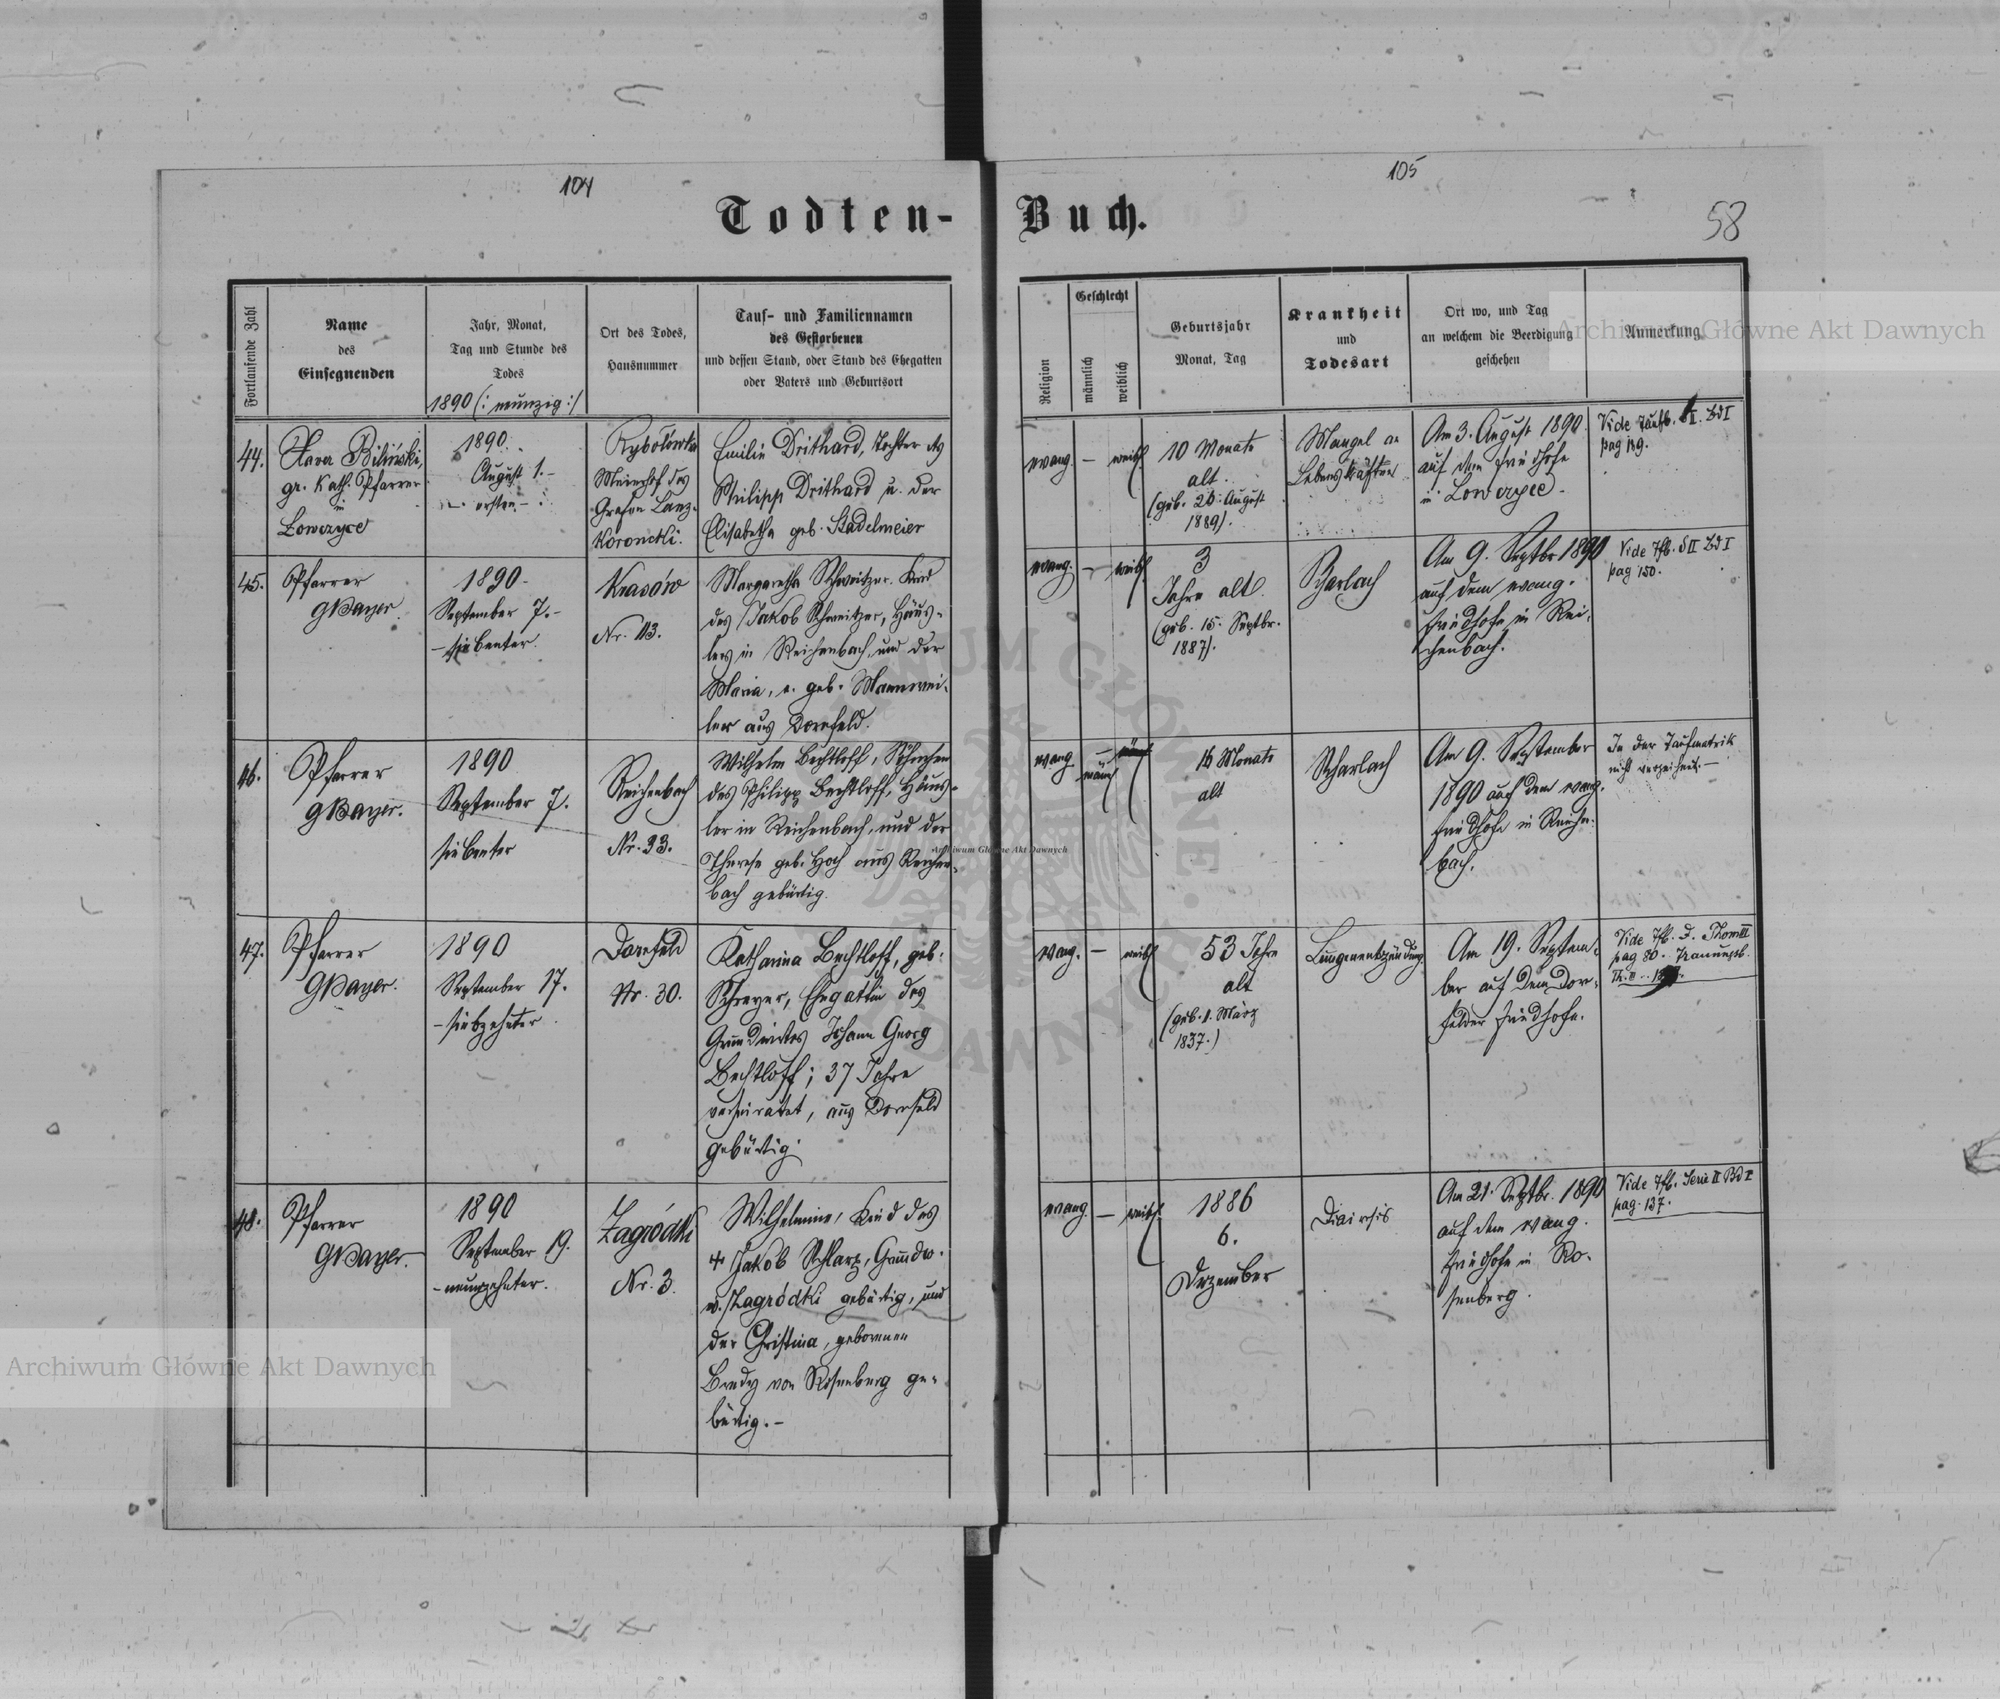 104
105
58
Todten-
Buch.
Fortlaufende Zahl
Name
des
Einsegnenden
Jahr, Monat,
Tag und Stunde des
Todes
1890 (: neunzig :)
Ort des Todes,
Hausnummer
Tauf- und Familiennamen
des Gestorbenen
und dessen Stand, oder Stand des Ehegatten
oder Vaters und Geburtsort
Religion
Geschlecht
männlich
weiblich
Geburtsjahr
Monat, Tag
Krankheit
und
Todesart
Ort wo, und Tag
an welchem die Beerdigung
geschehen
Anmerkung
44.
Xaver Biliński,
gr. kath. Pfarrer
in
Łowczyce
1890.
August 1.-
ersten
Rybołówka
Meierhof des
Grafen Lanz-
koroncki.
Emilie Drithard, Tochter des
Philipp Drithard u. der
Elisabetha geb. Stadelmeier
evang.
-
weibl.
10 Monate
alt.
(geb. 26. August
1889).
Mangel an
Lebenskräften
Am 3. August 1890.
auf dem Friedhofe
in Łowczyce.
Vide Taufb. Bd I
pag
45.
Pfarrer
GBayer.
1890.
September 7.-
-siebenter.
Krasów
Nr. 113.
Margaretha Schweitzer. Kind
des Jakob Schweitzer, Häus-
lers in Reichenbach, und der
Maria, e. geb. Mannwei-
ler aus Dornfeld.
evang.
-
weibl.
3
Jahre alt.
(geb. 15. Septbr.
1887).
Scharlach
Am 9. Septbr 1890
auf dem evang.
Friedhofe in Rei-
chenbach.
Vide Tfb. S II Bd I
pag 150.
46.
Pfarrer
GBayer.
1890
September 7.
siebenter
Reichenbach
Nr. 23.
Wilhelm Bechtloff, Söhnchen
des Philipp Bechtloff, Häus-
ler in Reichenbach, und der
Therese geb. Hoch aus Reichen-
bach gebürtig.
evang.
männl
16 Monate
alt
Scharlach
Am 9. September
1890 auf dem evang.
Friedhofe in Reichen-
bach.
In der Taufmatrik
nicht verzeichnet.-
47.
Pfarrer
GBayer.
1890
September 17.
-siebzehnter
Dornfeld
Nr. 30.
Katharina Bechtloff, geb.
Schreyer, Ehegattin des
Grundwirtes Johann Georg
Bechtloff; 37 Jahre
verheiratet, aus Dornfeld
gebürtig
evang.
-
weibl
53 Jahre
alt
(geb. 1. März
1837.)
Lungenentzündung
Am 19. Septem-
ber auf dem Dorn-
felder Friedhofe.
Vide Tfb. D. Thom III
pag 80. Trauungsb.
48.
Pfarrer
GBayer.
1890
September 19.
-neunzehnter.
Zagródki
Nr. 3.
Wilhelmine, Kind des
+ Jakob Schlarz, Grundw.
v. Zagródki gebürtig, und
der Christina, geborenen
Bredy von Rosenberg ge-
bürtig.-
evang.
-
weibl.
1886
6.
Dezember
Am 21. Septbr. 1890
auf dem evang.
Friedhofe in Ro-
senberg.
Vide Tfb. Serie II Bd I
pag. 137.
Archiwum Główne Akt Dawnych
Archiwum Główne Akt Dawnych
Archiwum Główne Akt Dawnych